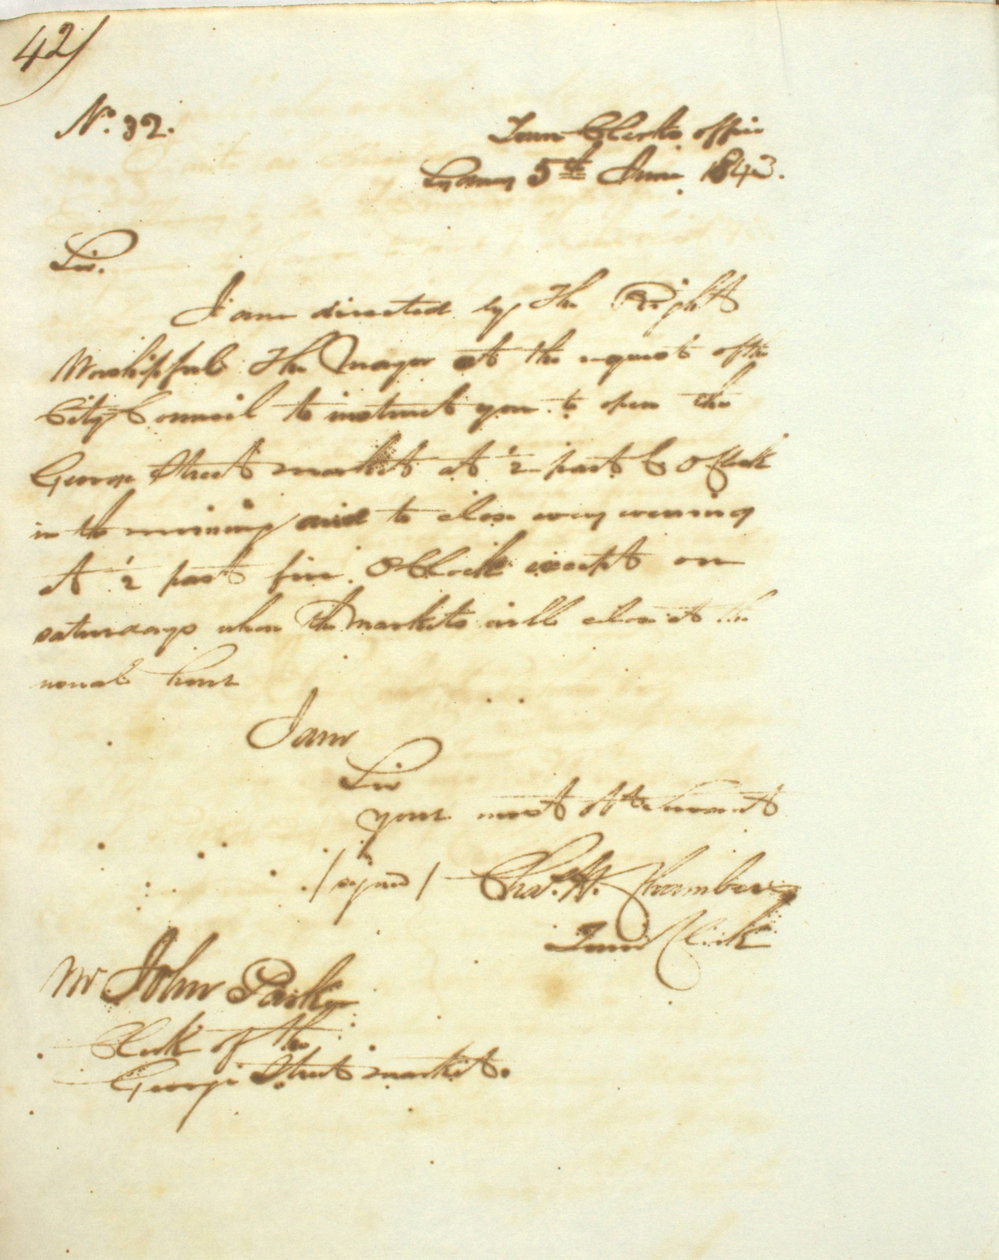 42)
No. 32.
Town Clerks office
Sydney 5th June 1843.
Sir.
I am directed by the Right
Worshipful the Mayor at the request of the
City Council to instruct you to open the
George Street markets at ½ past 6 O Clock
in the morning and to close every evening
at ½ past five O Clock except on
saturdays when the Markets will close at the
usual hour
I am
Sir
your most Obt Servant
/signed/ Chas. H. Chambers
Town Clerk
Mr John Parker
Clerk of the
George Street market.